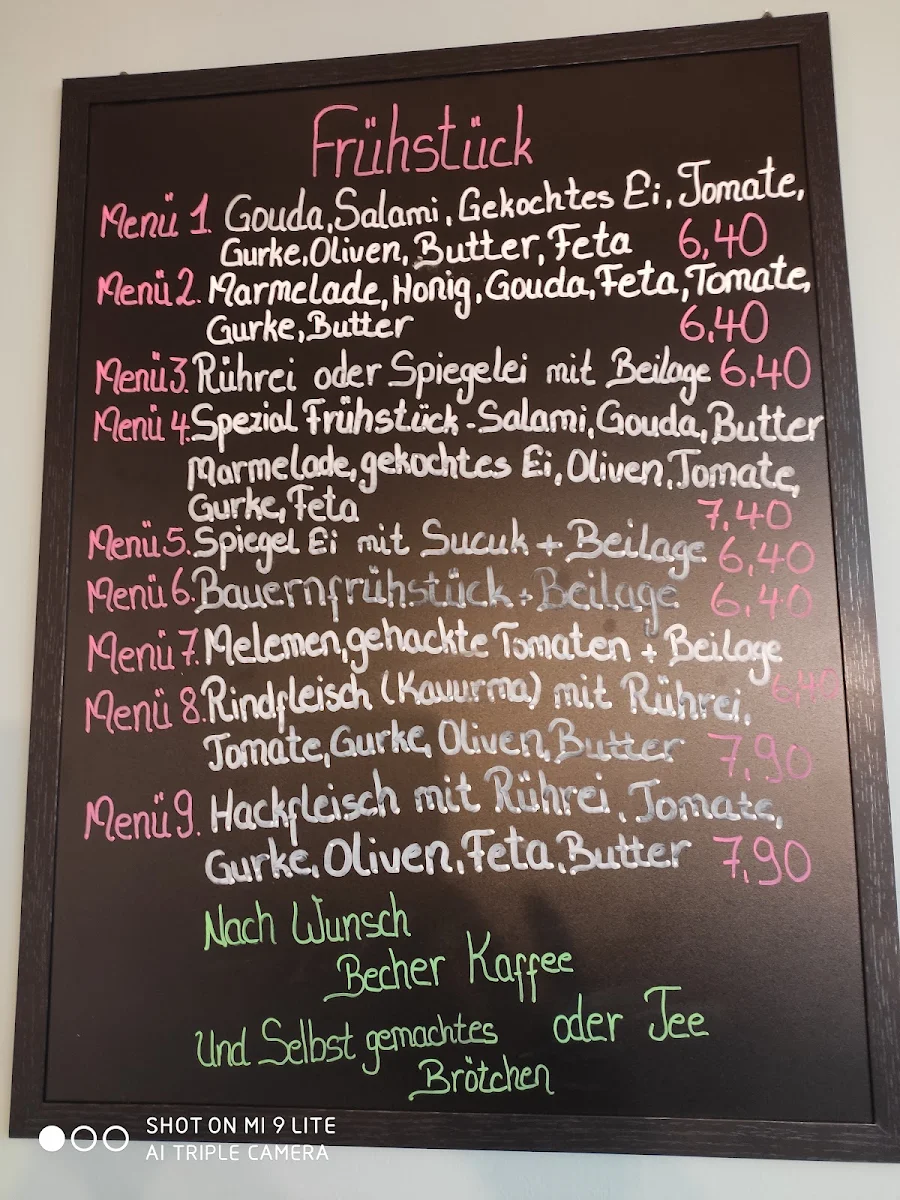 Frühstück
Menü 1. Gouda, Salami, Gekochtes Ei, Tomate,
Gurke, Oliven, Butter, Feta 6,40
Menü 2. Marmelade, Honig, Gouda, Feta, Tomate,
Gurke, Butter 6,40
Menü 3. Rührei oder Spiegelei mit Beilage 6,40
Menü 4. Spezial Frühstück - Salami, Gouda, Butter
Marmelade, gekochtes Ei, Oliven, Tomate,
Gurke, Feta 7,40
Menü 5. Spiegel Ei mit Sucuk + Beilage 6,40
Menü 6. Bauernfrühstück + Beilage 6,40
Menü 7. Melemen, gehackte Tomaten + Beilage
6,40
Menü 8. Rindfleisch (Kauurma) mit Rührei,
Tomate, Gurke, Oliven, Butter 7,90
Menü 9. Hackfleisch mit Rührei, Tomate,
Gurke, Oliven, Feta, Butter 7,90
Nach Wunsch
Becher Kaffee
oder Tee
Und Selbst gemachtes
Brötchen
SHOT ON MI 9 LITE
AI TRIPLE CAMERA